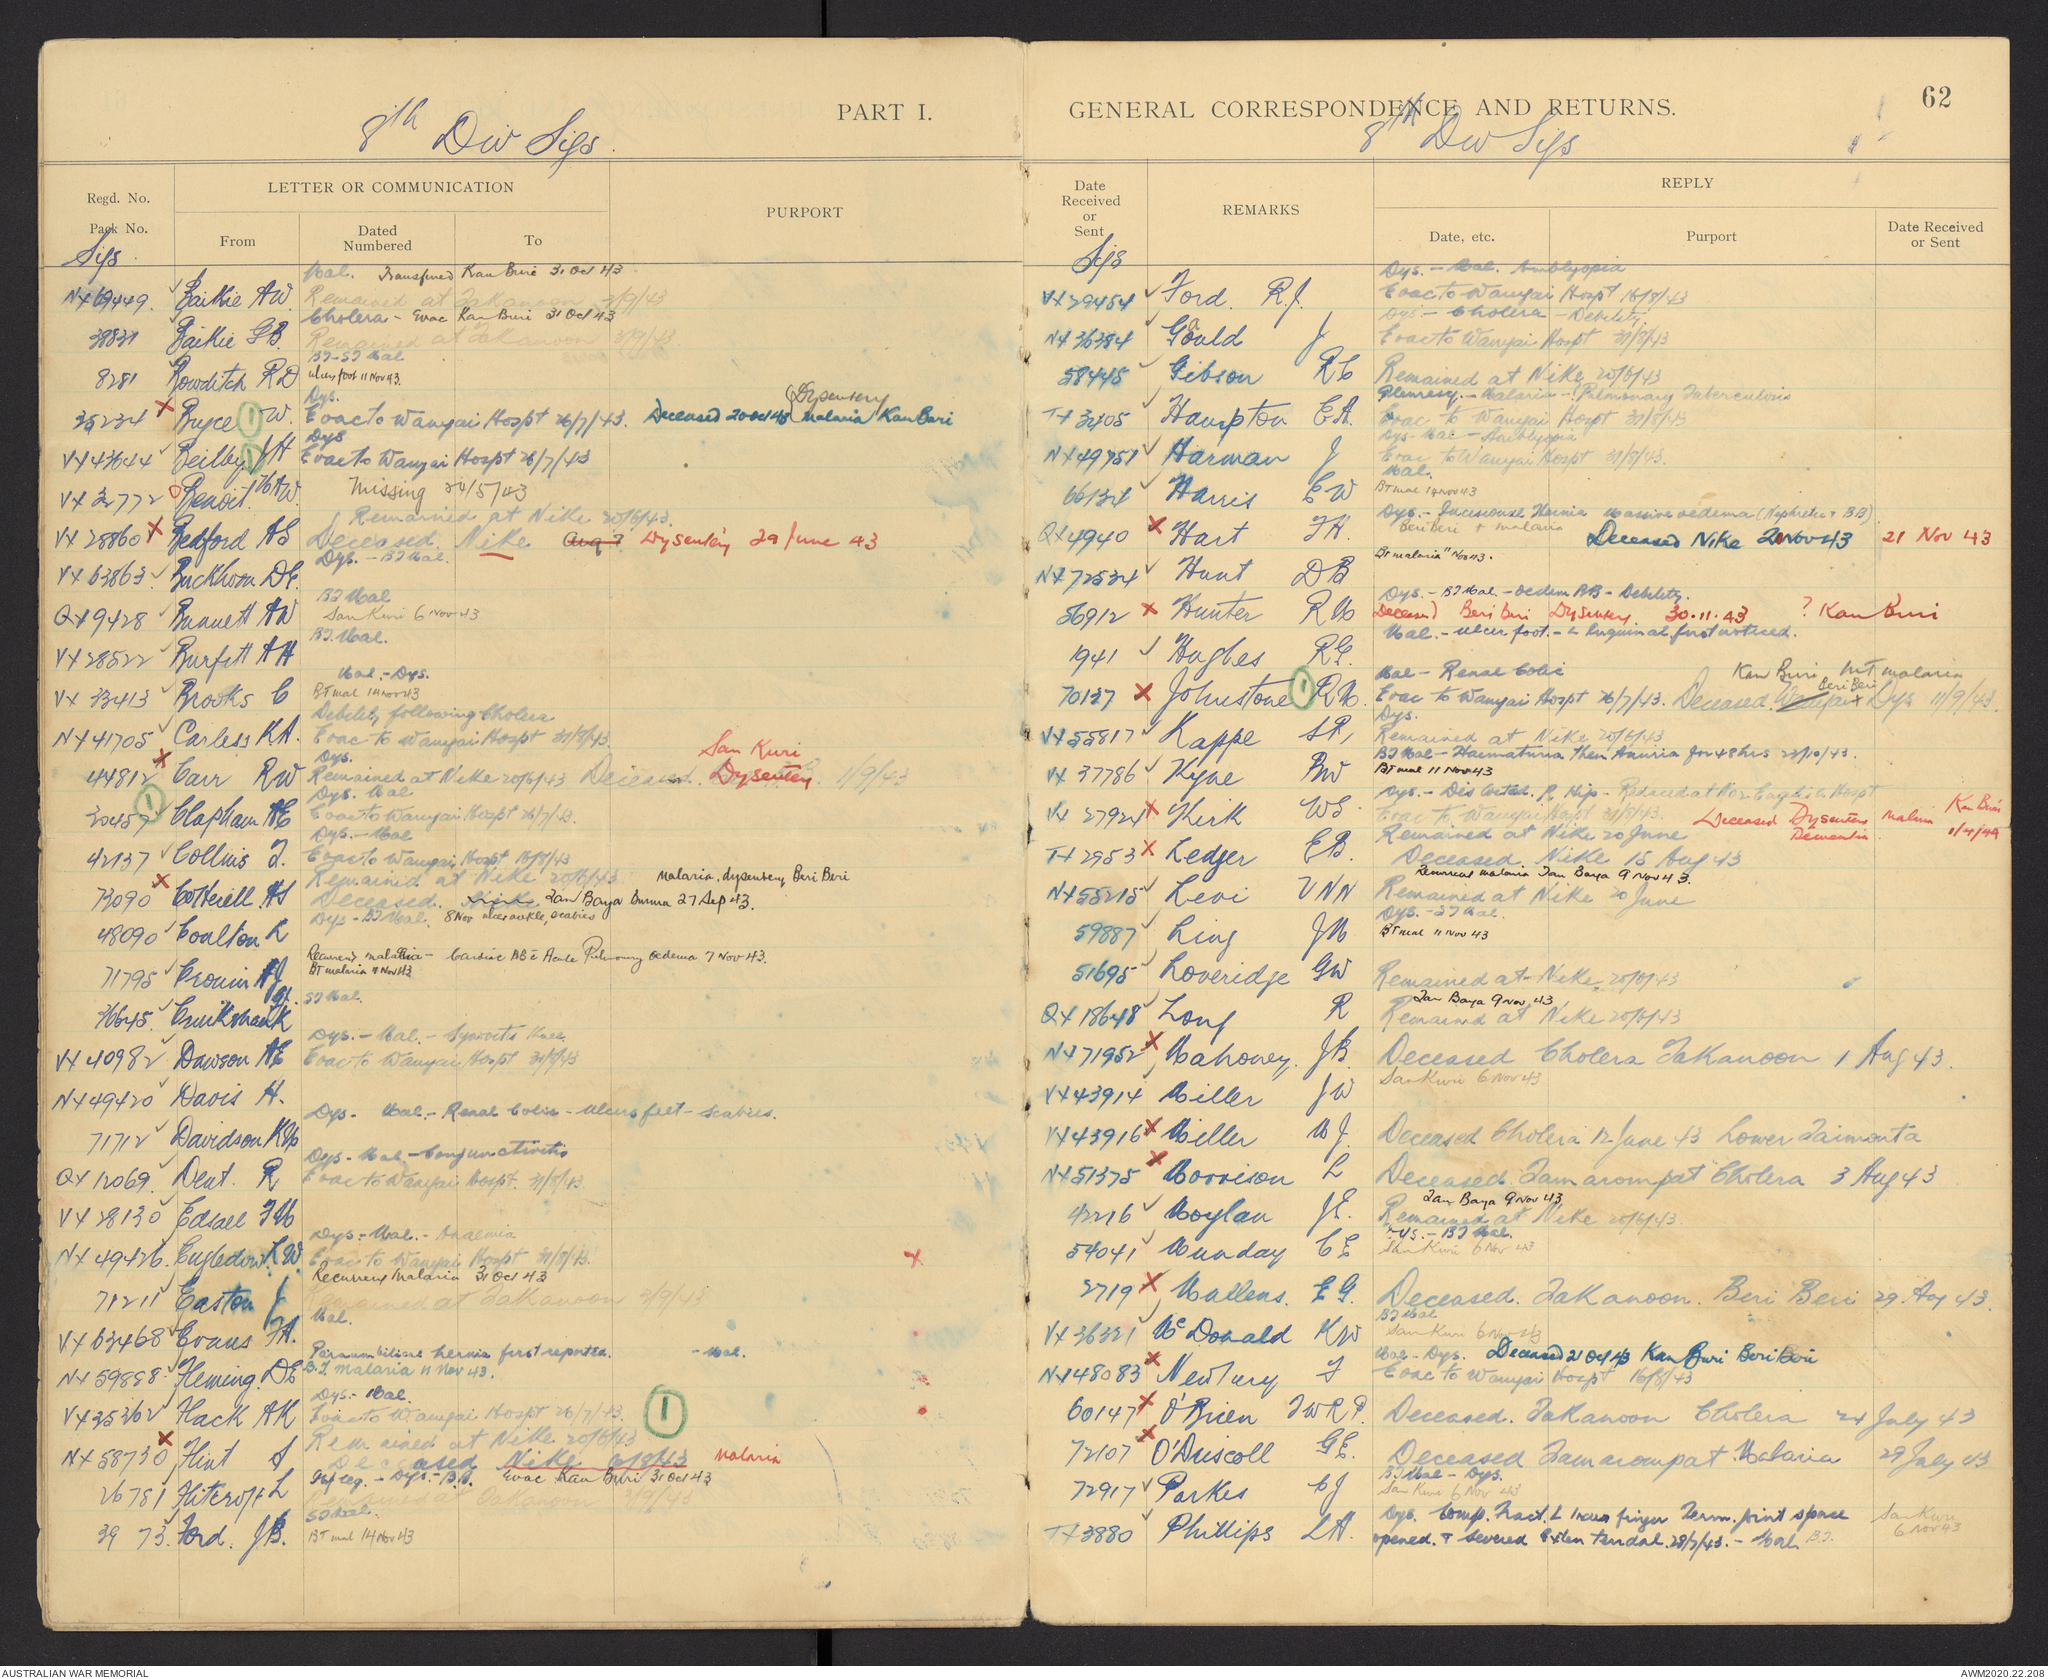 PART I.
8th Div Sigs.
Regd. No.
Pack No.
LETTER OR COMMUNICATION
From
Dated
Numbered
To
PURPORT
Sigs.
Mal. Transferred Kan Buri 31 Oct 43
NX69449. Baikie AW Remained at Takanoon 2/9/43
Cholera - Evac Kan Buri 31 Oct 43
39831 Baikie GB. Remained at Takanoon 2/9/43
BT-ST Mal
8281 Bowditch RD ulcer foot 11 Nov 43.
Dys. (Dysentery
35234 X Bryce 1 W. Evac to Wanyai Hospt 26/7/43. Deceased 20 Oct 43 Malaria Kan Buri
Dys
VX43644 Beilby 1 JH Evac to Wanyai Hospt 26/7/43
VX32772 Benoit. Missing 24/5/43
Remained at Nike 20/6/43.
VX28860 X Bedford AS Deceased Nike Aug ? Dysentery 29 June 43
Dys. - BT Mal.
VX63863. Buckhorn DE.
BT Mal
QX9428 Bunnett AW San Kuri 6 Nov 43
BT. Mal.
VX28522 Burfitt AH
Mal. - Dys.
VX33413 Brooks C BT mal 14 Nov 43
Debility following Cholera
NX41705 Carless KA. Evac to Wanyai Hospt 31/8/43.
Dys. San Kuri
44812 X Carr RW Remained at Nike 20/6/43 Deceased. Dysentery. 1/9/43
Dys. Mal
30457 1 Clapham AE Evac to Wanyai Hospt 26/7/43.
Dys. - Mal
42137 Collins J. Evac to Wanyai Hospt 16/8/43
Remained at Nike 20/6/43 Malaria, dysentery Beri Beri
73090 X Cotterill. AS Deceased. Nike Tan Baya Burma 27 Sep 43.
Dys - BT Mal. 8 Nov ulcer ankle, scabies
48090 Coulton R
Recurrent malaria - Cardiac BB c Acute Pulmonary oedema 7 Nov 43.
71795 Cronin AJ BT malaria 9 Nov 43
ST Mal.
36645. Cruikshank
Dys. - Mal. - Synovitis Knee
VX40982 Dawson AE Evac to Wanyai Hospt 31/8/43
NX49420 Davis H.
Dys - Mal. - Renal Colic - ulcers feet - scabies.
71712 Davidson
Dys - Mal - Conjunctivitis
QX12069. Dent. R Evac to Wanyai Hospt. 31/8/43.
VX28130 Edsall
Dys. - Mal. - Anaemia
NX49426. Engledow. LW Evac to Wanyai Hospt 31/8/43. X
Recurrent Malaria 31 Oct 43
71211 Easton J Remained at Takanoon 2/9/43
Mal.
VX63468 Evans
Paraumbilical hernia first reported. - Mal.
NX59888. Fleming. DE B.T. malaria 11 Nov 43.
Dys. - Mal.
VX35362 Flack AK Evac to Wanyai Hospt 26/7/43. 1
Remained at Nike 20/6/43
NX58730 X Flint Deceased Nike Malaria
leg. - Dys. - B.B. Evac Kan Buri 31 Oct 43
26781 Flitcroft L Remained at Takanoon 2/9/43
ST Mal.
39 73. Ford. JB. BT mal 14 Nov 43
GENERAL CORRESPONDENCE AND RETURNS.
62
8TH Div Sigs
Date
Received
or
Sent
REMARKS
REPLY
Date, etc.
Purport
Date Received
or Sent
Sigs
Dys. - Mal. Amblyopia
VX29454 Ford. R.J. Evac to Wanyai Hospt 16/8/43
Dys. - Cholera - Debility.
NX36384 Gould J Evac to Wanyai Hospt 31/8/43
58445 Gibson RC Remained at Nike 20/6/43
Pleuresy. - Malaria - ? Pulmonary Tuberculosis
TX3405 Hampton EA. Evac to Wanyai Hospt 31/8/43
Dys - Mal - Amblyopia
NX49751 Harman J Evac to Wanyai Hospt 31/8/43.
Mal.
66134 Harris EW BT mal 14 Nov 43
Dys. - Hernia Massive oedema (Nephretic & BB)
Beri Beri & malaria
QX4940 X Hart Deceased Nike 21 Nov 43 21 Nov 43
BT malaria 11 Nov 43.
NX72534 Hunt DB
Dys. - BT Mal - oedem BB - Debility.
56912 X Hunter Deceased Beri Beri Dysentery 30.11.43 ? Kan Buri
Mal. - ulcer foot. - L Inguinal first noticed.
1941 Hughes
Mal - Renal Colic Kan Buri MT malaria
Beri Beri
70137 X Johnstone 1 Evac to Wanyai Hospt 26/7/43. Deceased. Wanyai & Dys 11/9/43.
Dys.
VX55817 Kappe Remained at Nike 20/6/43
BT Mal - Haematuria then Anuria for 48 hrs 23/10/43.
VX37786 Kyne BW BT mal 11 Nov 43
Dys. - Dislocated. R Hip - Reduced at Hospt
VX27924 X Kirk WS. Evac to Wanyai Hospt 31/8/43. Deceased Dysentery Malaria Kan Buri
Remained at Nike 20 June Dementia 1/4/44
TX2953 X Ledger EB. Deceased Nike 15 Aug 43
Recurrent malaria Tan Baya 9 Nov 43.
NX55215 Levi VNN Remained at Nike 20 June
Dys. - ST Mal.
59887 Ling BT mal 11 Nov 43
51695 Loveridge GW Remained at Nike 20/6/43
Tan Baya 9 Nov 43
QX18648 Long R Remained at Nike 20/6/43
NX71952 X Mahoney. JB. Deceased Cholera Takanoon 1 Aug 43
San Kuri 6 Nov 43
VX43914 Miller JW
VX43916 X Miller Deceased Cholera 12 June 43 Lower Taimonta
NX51375 X Morrison L Deceased Tamarompat Cholera 3 Aug 43
Tan Baya 9 Nov 43
42216 Moylan Remained at Nike 20/6/43.
Dys. - BT Mal.
54041 Munday CE San Kuri 6 Nov 43
2719 X Mullens. EG. Deceased. Takanoon. Beri Beri 29 Aug 43.
BT Mal
VX36321 McDonald KW San Kuri 6 Nov 43
Mal - Dys. Deceased 21 Oct 43 Kan Buri Beri Beri
NX48083 X Newbury Evac to Wanyai Hospt 16/8/43
60147 X O'Brien Deceased. Takanoon Cholera 24 July 43
72107 X O'Driscoll Deceased Tamarompat Malaria 29 July 43
BT Mal - Dys.
72917 Parkes CJ San Kuri 6 Nov 43
Dys. Comp. Fract. L Index finger Term. joint space San Kuri
TX3880 Phillips LA. opened. & severed Exten tendal. 28/7/43. - Mal. BT. 6 Nov 43
AUSTRALIAN WAR MEMORIAL
AWM2020.22.208